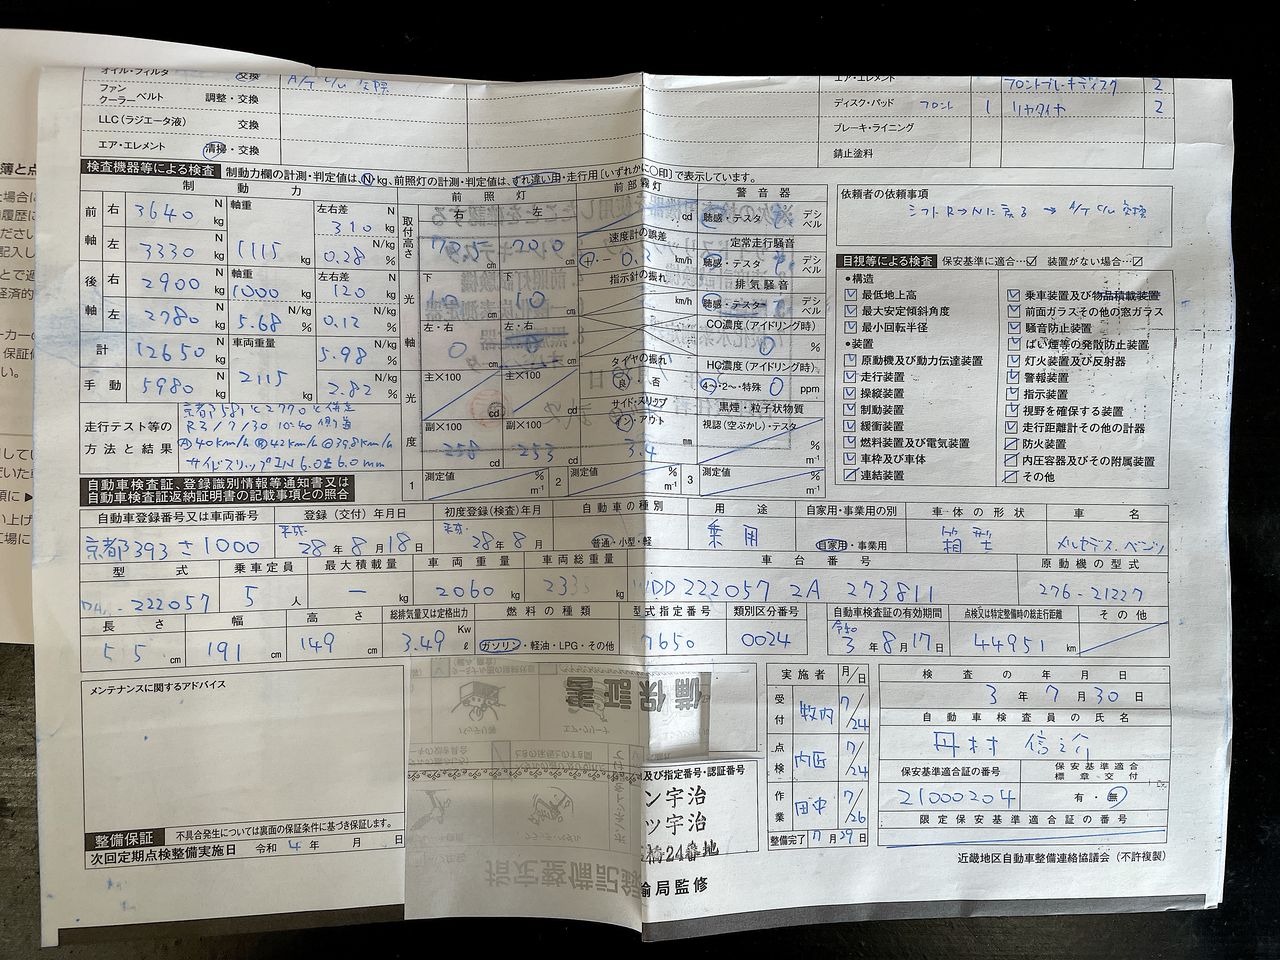 オイル・フィルタ 交換
ファン
クーラーベルト 調整・交換
LLC(ラジエータ液) 交換
エア・エレメント 清掃・交換
A/T C/U 交換
エア・エレメント フロントブレーキディスク 2
ディスク・パッド フロント 1 リヤタイヤ 2
ブレーキ・ライニング
錆止塗料
検査機器等による検査 制動力欄の計測・判定値は、N・kg、前照灯の計測・判定値は、すれ違い用・走行用〔いずれかに○印〕で表示しています。
制動力
前軸 右 3640 N 軸重 左右差 310 N
左 3330 N 1115 kg 0.28 N/kg %
後軸 右 2900 N 軸重 1000 kg 左右差 120 N
左 2780 N 5.68 % 0.12 N/kg %
計 12650 N 車両重量 5.98 N/kg %
手動 5980 N 2115 kg 2.82 N/kg %
走行テスト等の
方法と結果
R3/7/30 10:40
40km/h 42km/h 39.8km/h
サイドスリップIN 6.0 6.0mm
前照灯
取付高さ 右 左
cm cm
光軸 下 10 cm 下 10 cm
左・右 0 cm 左・右 0 cm
光度 主×100 主×100
副×100 258 cd 副×100 253 cd
前部霧灯
cd
速度計の誤差
km/h
指示針の振れ
km/h
タイヤの振れ
良・否
サイド・スリップ
イン・アウト
3.4 mm
警音器
聴感・テスタ デシベル
定常走行騒音
聴感・テスタ デシベル
排気騒音
聴感・テスター デシベル
CO濃度(アイドリング時)
0 %
HC濃度(アイドリング時)
4〜・2〜・特殊 0 ppm
黒煙・粒子状物質
視認(空ぶかし)・テスタ
%
m-1
1 測定値 % m-1 2 測定値 % m-1 3 測定値 % m-1
依頼者の依頼事項
シフトR→Nに戻る → A/T C/U 交換
目視等による検査 保安基準に適合…☑ 装置がない場合…〼
●構造
最低地上高
最大安定傾斜角度
最小回転半径
●装置
原動機及び動力伝達装置
走行装置
操縦装置
制動装置
緩衝装置
燃料装置及び電気装置
車枠及び車体
連結装置
乗車装置及び物品積載装置
前面ガラスその他の窓ガラス
騒音防止装置
ばい煙等の発散防止装置
灯火装置及び反射器
警報装置
指示装置
視野を確保する装置
走行距離計その他の計器
防火装置
内圧容器及びその附属装置
その他
自動車検査証、登録識別情報等通知書又は
自動車検査証返納証明書の記載事項との照合
自動車登録番号又は車両番号 登録(交付)年月日 初度登録(検査)年月 自動車の種別 用途 自家用・事業用の別 車体の形状 車名
京都393さ1000 平成28年8月18日 平成28年8月 普通・小型・軽 乗用 自家用・事業用 箱型 メルセデス・ベンツ
型式 乗車定員 最大積載量 車両重量 車両総重量 車台番号 原動機の型式
222057 5人 ー kg 2060 kg kg WDD222057 2A 273811 276-21227
長さ 幅 高さ 総排気量又は定格出力 燃料の種類 型式指定番号 類別区分番号 自動車検査証の有効期間 点検又は特定整備時の総走行距離 その他
cm 191 cm 149 cm 3.49 Kw ℓ ガソリン・軽油・LPG・その他 0024 令和3年8月17日 44951 km
メンテナンスに関するアドバイス
整備保証 不具合発生については裏面の保証条件に基づき保証します。
次回定期点検整備実施日 令和4年 月 日
及び指定番号・認証番号
ン宇治
ツ宇治
橋24番地
輸局監修
実施者 月/日
受付 牧内 7/24
点検 内匠 7/24
作業 田中 7/26
整備完了 7月29日
検査の年月日
3年7月30日
自動車検査員の氏名
丹村 信介
保安基準適合証の番号 保安基準適合標章交付
21000204 有・無
限定保安基準適合証の番号
近畿地区自動車整備連絡協議会(不許複製)